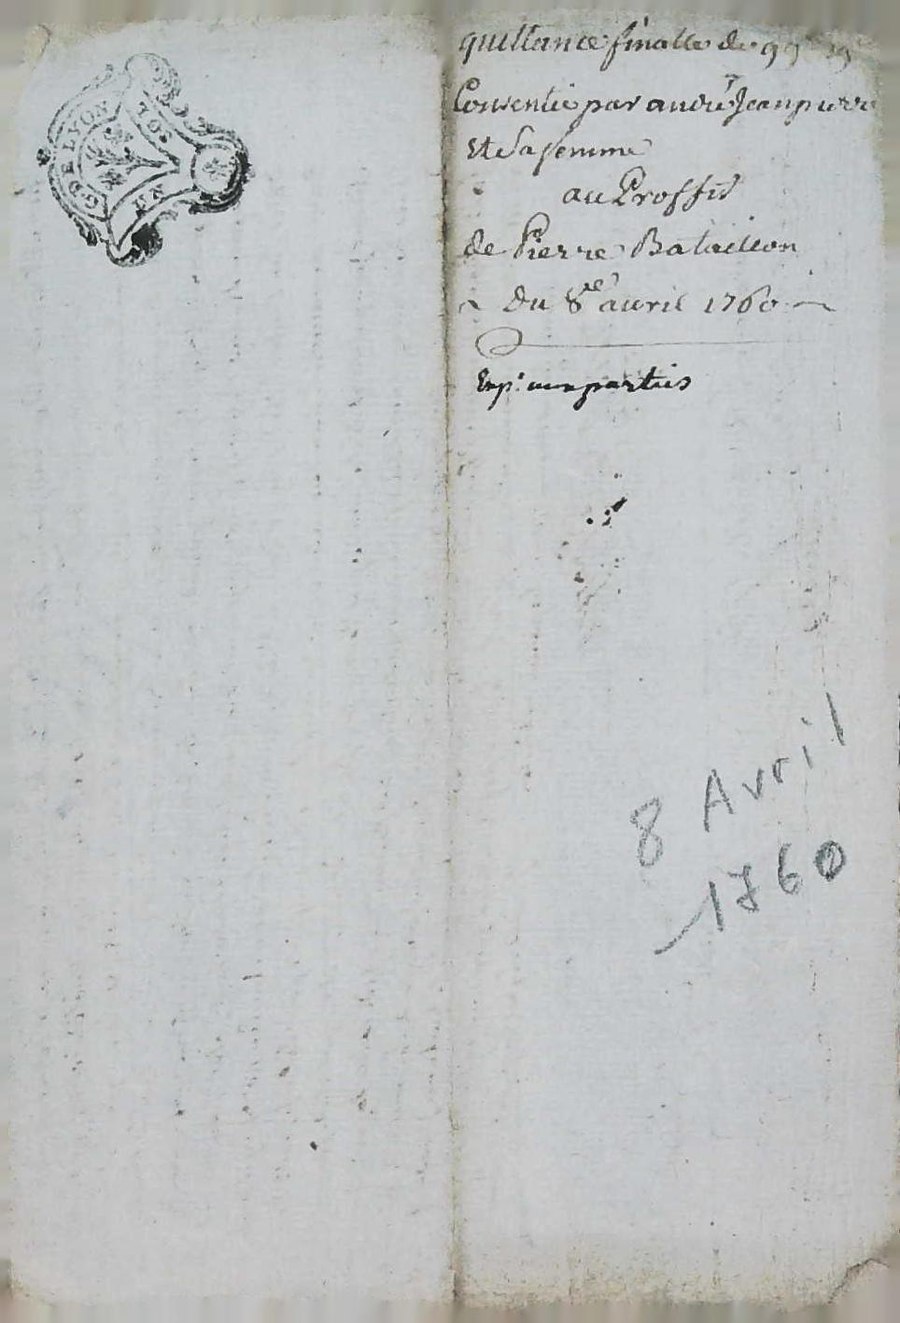 G DE LYON
UN SOL
quittance finalle de 99
Consentie par andré Jeanpierre
Et Sa femme
au Proffit
de Pierre Bataillon
Du 8e avril 1760
Exp: aux parties
8 Avril
1760